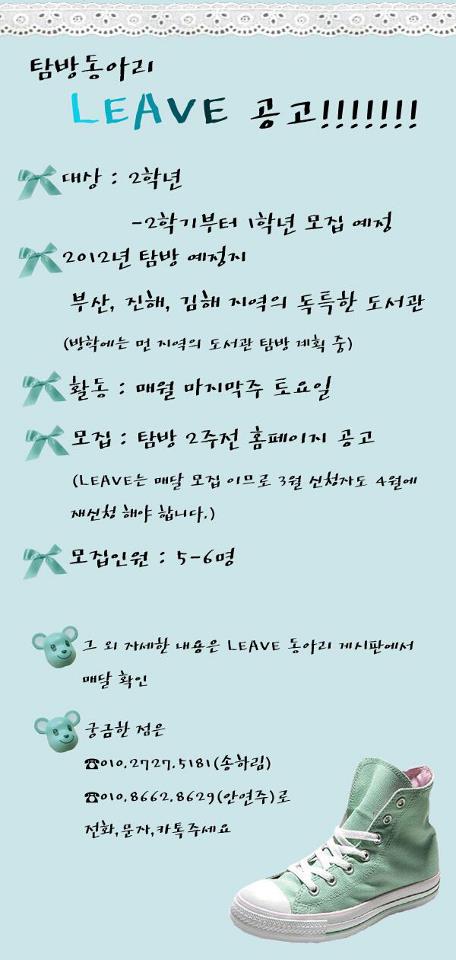 탐방동아리
LEAVE 공고!!!!!!!
대상 : 2학년
-2학기부터 1학년 모집 예정
2012년 탐방 예정지
부산, 진해, 김해 지역의 독특한 도서관
(방학에는 먼 지역의 도서관 탐방 계획 중)
활동 : 매월 마지막주 토요일
모집 : 탐방 2주전 홈페이지 공고
(LEAVE는 매달 모집 이므로 3월 신청자도 4월에
재신청 해야 합니다.)
모집인원 : 5-6명
그 외 자세한 내용은 LEAVE 동아리 게시판에서
매달 확인
궁금한 점은
☎010.2727.5181(송하림)
☎010.8662.8629(안연주)로
전화,문자,카톡주세요